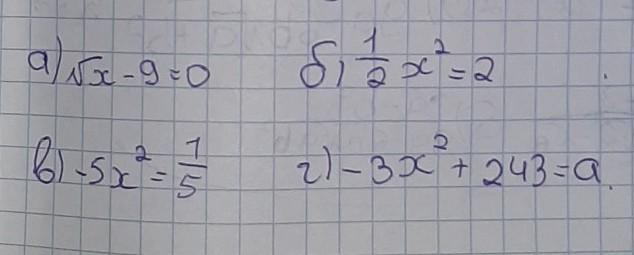 а) √x - 9 = 0 б) 1/2 x² = 2
в) -5x² = 1/5 г) -3x² + 243 = a